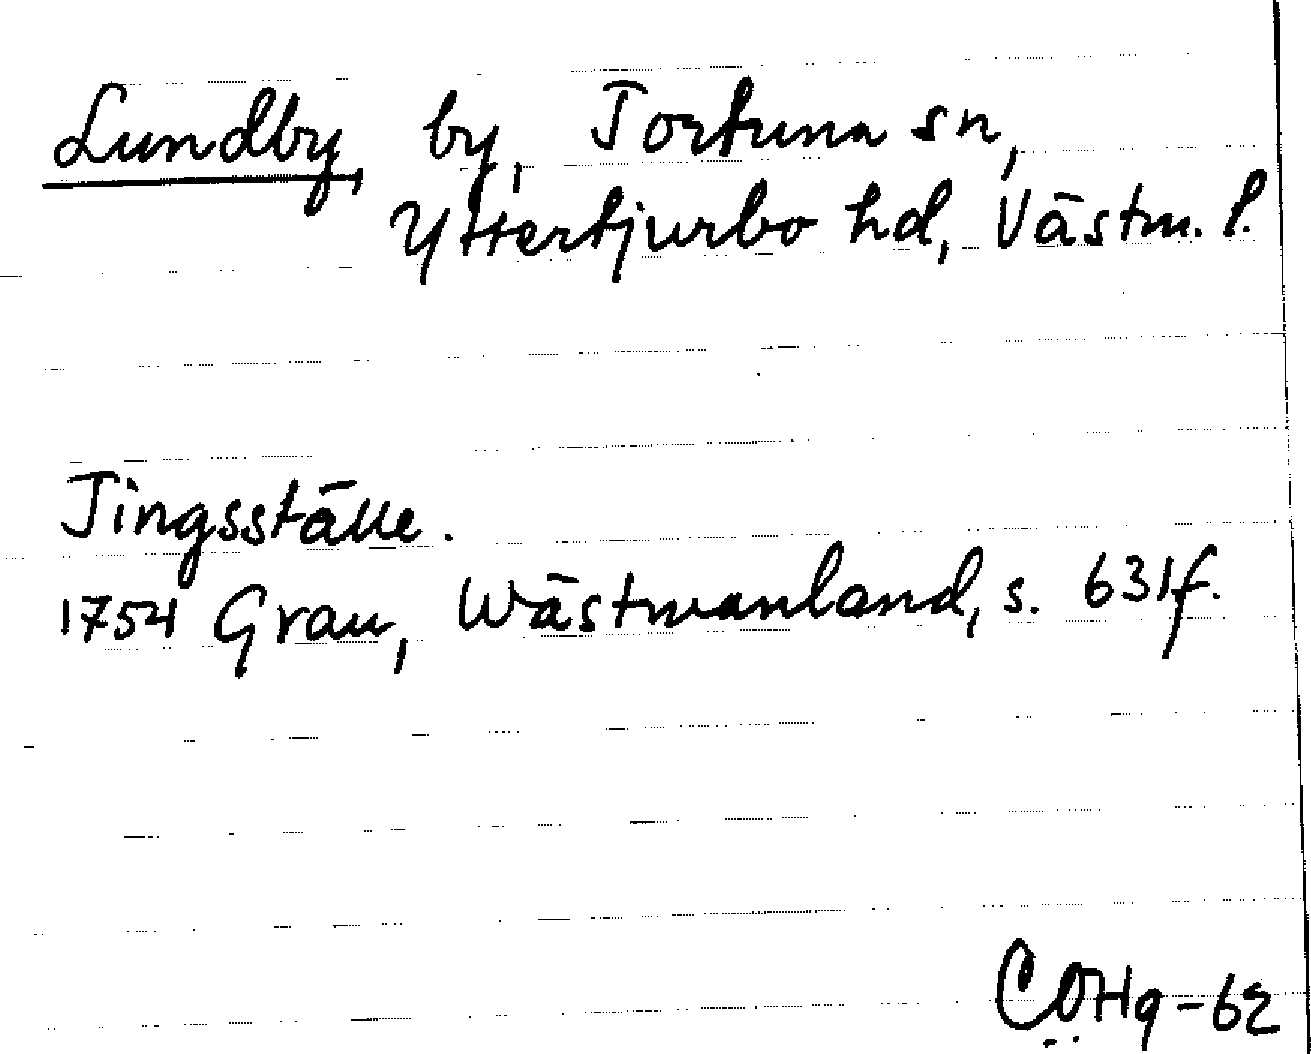 Lundby, by, Tortuna sn,
Yttertjurbo hd, Västm. l.
Tingsställe.
1754 Grau, Wästmanland, s. 631f.